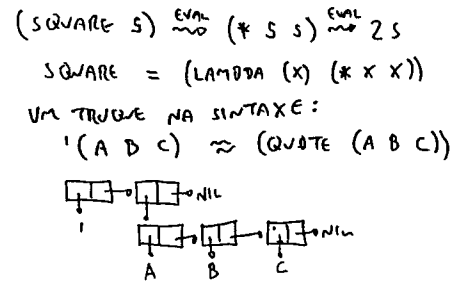 (SQUARE 5) EVAL ⇝ (* 5 5) EVAL ⇝ 25
SQUARE = (LAMBDA (X) (* X X))
UM TRUQUE NA SINTAXE:
'(A B C) ≈ (QUOTE (A B C))
NIL
' NIL
A B C